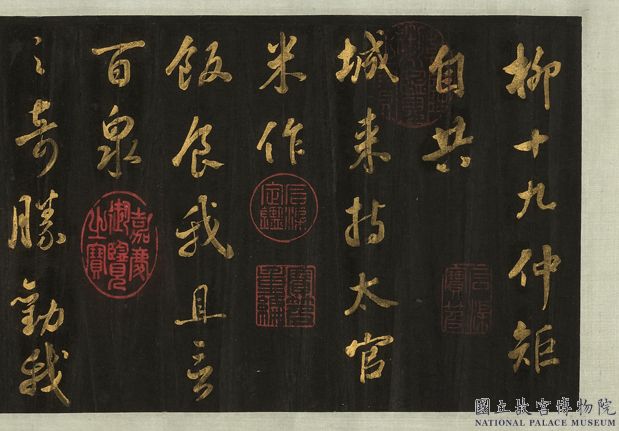 柳十九仲矩
自共
城来持太官
米作
飯食我且言
百泉
之奇勝勸我
石渠寶笈
石渠定鑑
寶笈重編
嘉慶御覽之寶
國立故宮博物院
NATIONAL PALACE MUSEUM